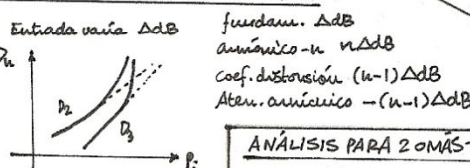 Entrada varía ΔdB
fundam. ΔdB
armónico-n nΔdB
coef. distorsión (n-1)ΔdB
Aten. armónico -(n-1)ΔdB
Dn
D2
D3
Pi
ANÁLISIS PARA 2 O MÁS